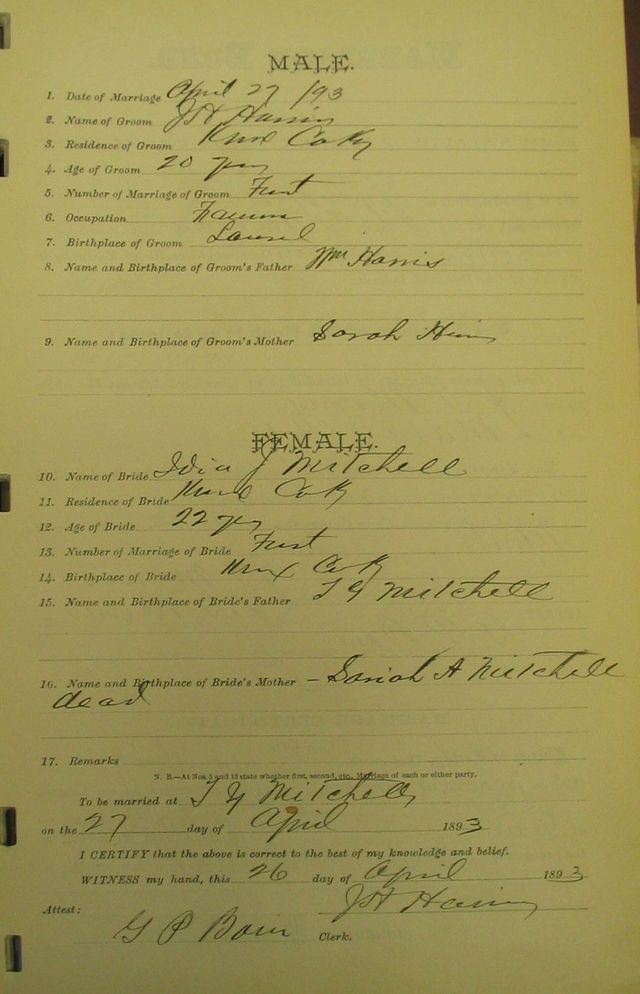 MALE.
1. Date of Marriage April 27 /93
2. Name of Groom J H Harris
3. Residence of Groom Knox Co Ky
4. Age of Groom 20 yrs
5. Number of Marriage of Groom First
6. Occupation Farmer
7. Birthplace of Groom Laurel
8. Name and Birthplace of Groom's Father Wm Harris
9. Name and Birthplace of Groom's Mother Sarah Harris
FEMALE.
10. Name of Bride J Mitchell
11. Residence of Bride Knox Co Ky
12. Age of Bride 22 yrs
13. Number of Marriage of Bride First
14. Birthplace of Bride Knox Co Ky
15. Name and Birthplace of Bride's Father T Y Mitchell
16. Name and Birthplace of Bride's Mother – Sariah A Mitchell
dead
17. Remarks
N. B.—At Nos. 5 and 13 state whether first, second, etc., Marriage of each or either party.
To be married at T Y Mitchells
on the 27 day of April 1893
I CERTIFY that the above is correct to the best of my knowledge and belief.
WITNESS my hand, this 26 day of April 1893
J H Harris
Attest:
G P Clerk.